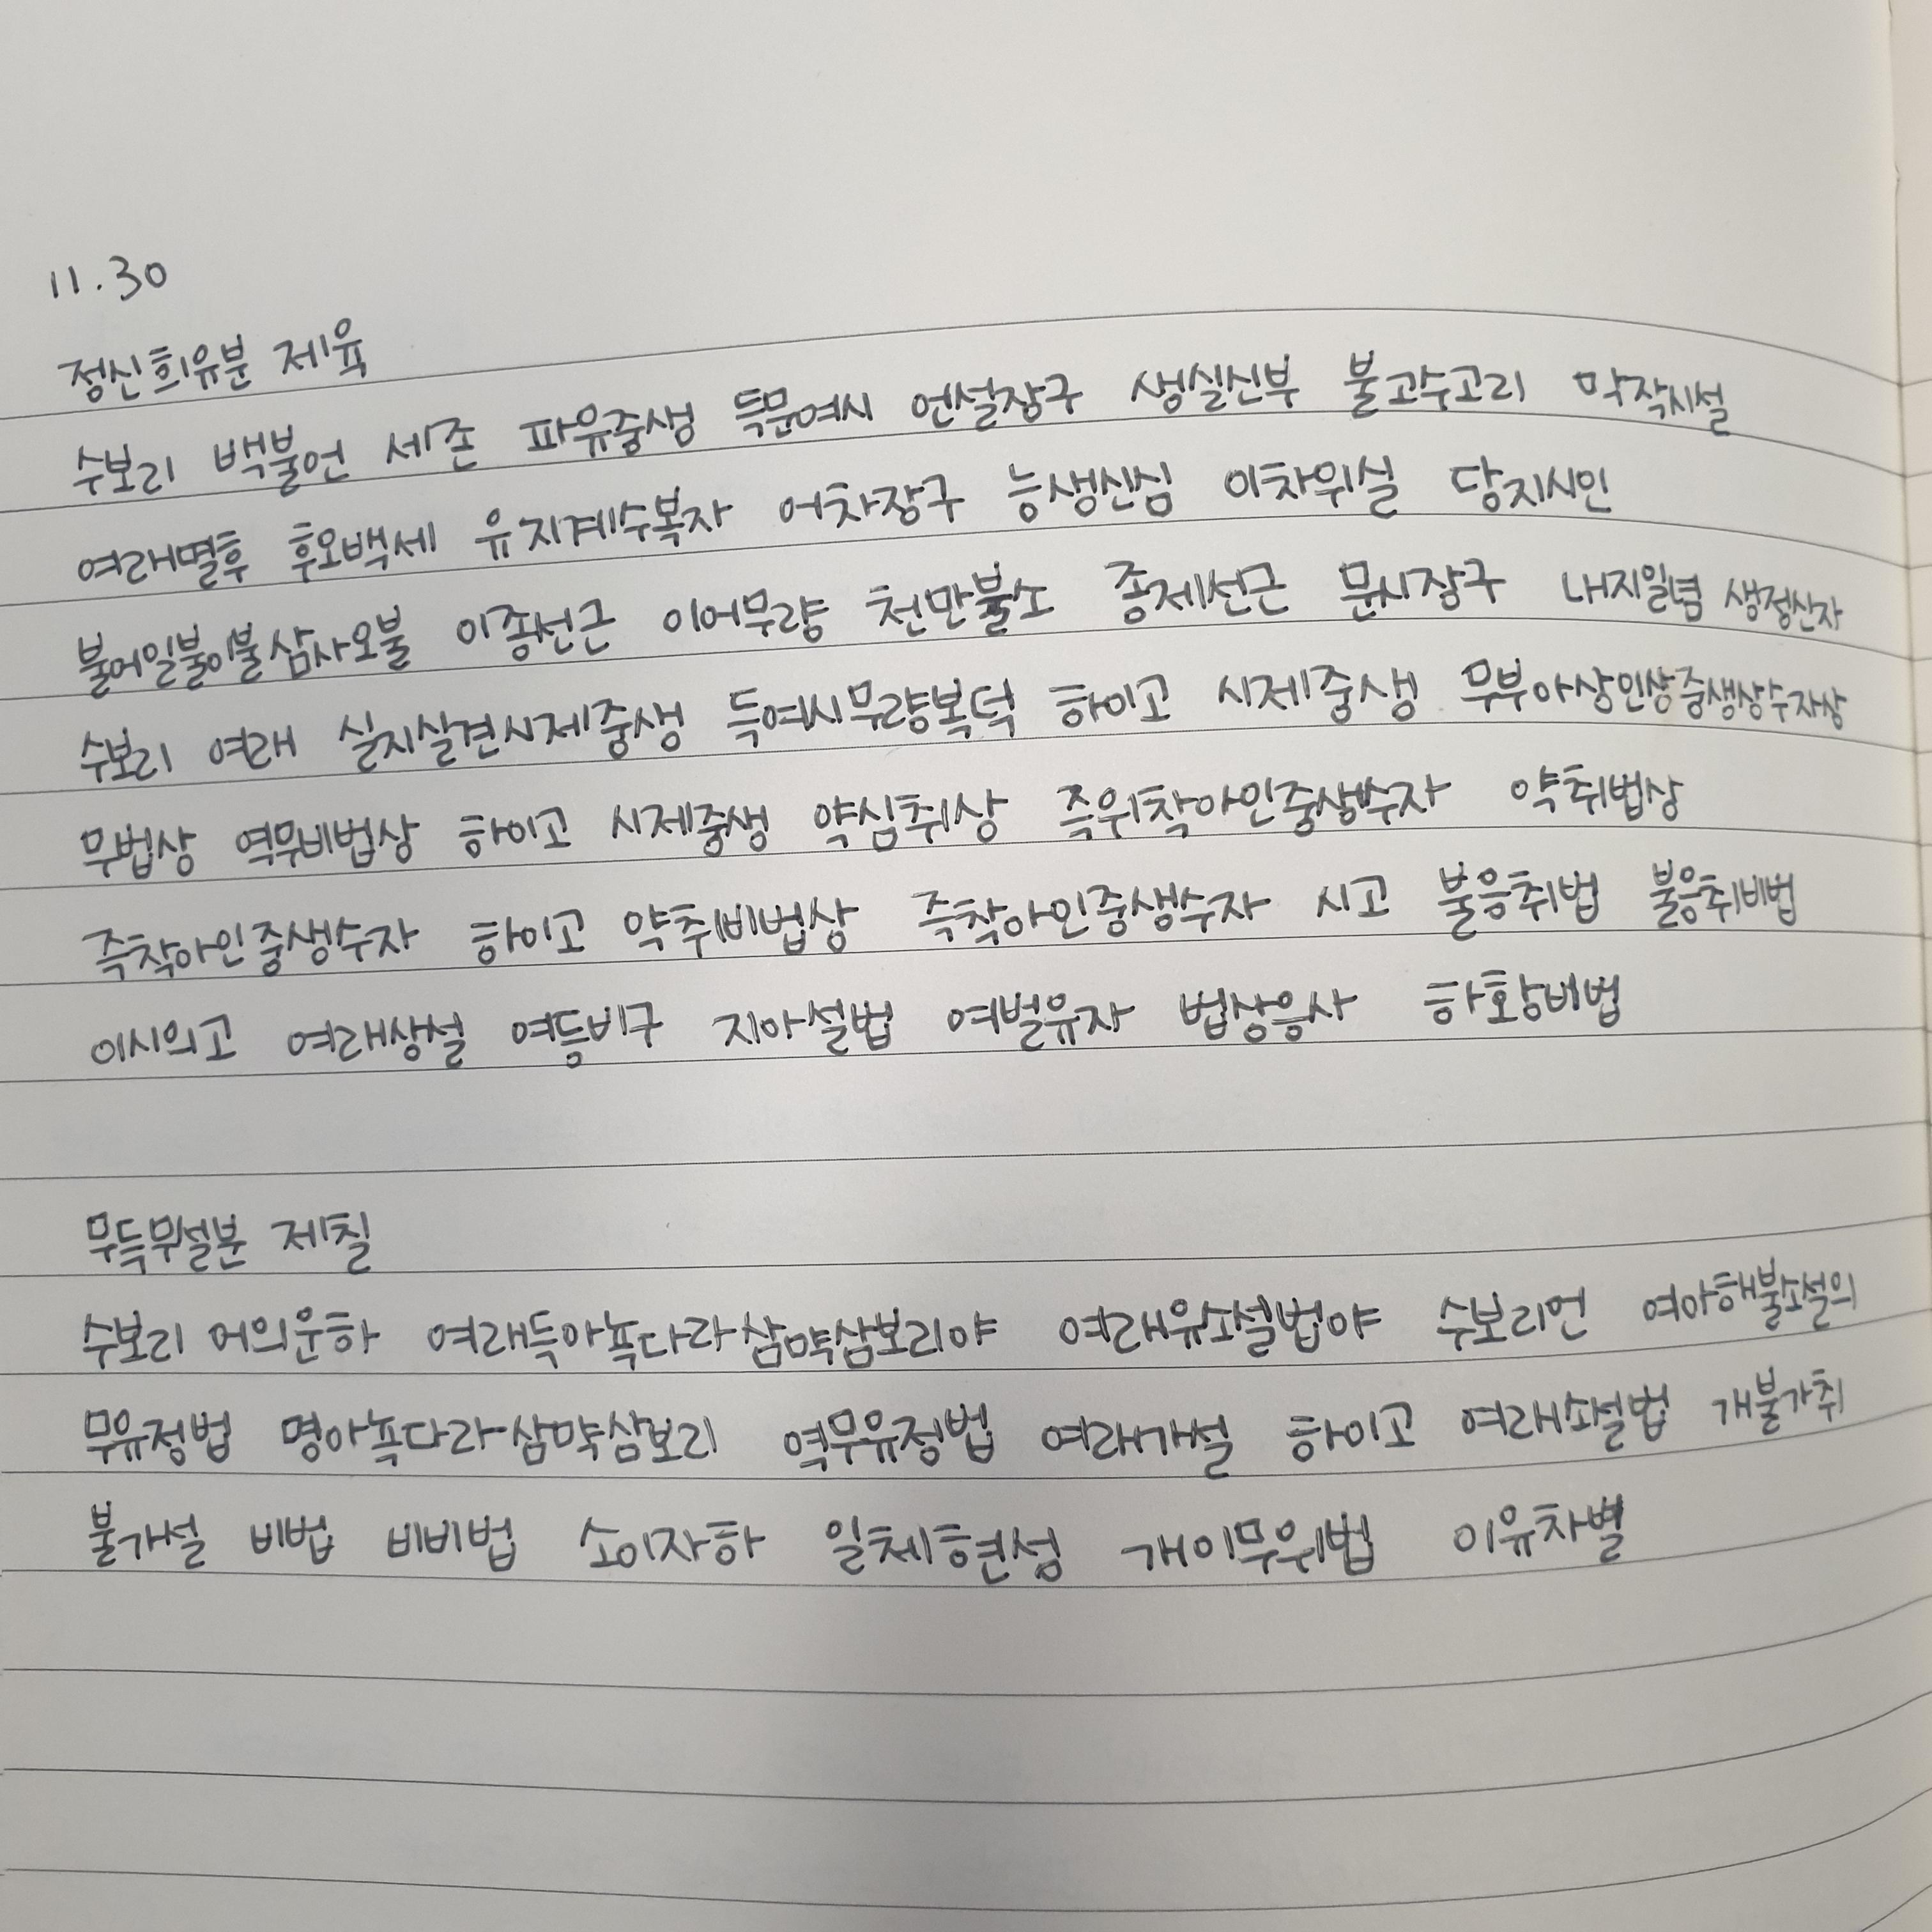 11.30
정신희유분 제육
수보리 백불언 세존 파유중생 득문여시 언설장구 생실신부 불고수고리 막작시설
여래멸후 후오백세 유지계수복자 어차장구 능생신심 이차위실 당지시인
불어일불이불삼사오불 이종선근 이어무량 천만불소 종제선근 문시장구 내지일념 생정신자
수보리 여래 실지실견시제중생 득여시무량복덕 하이고 시제중생 무부아상인상중생상수자상
무법상 역무비법상 하이고 시제중생 약심취상 즉위착아인중생수자 약취법상
즉착아인중생수자 하이고 약취비법상 즉착아인중생수자 시고 불응취법 불응취비법
이시의고 여래상설 여등비구 지아설법 여벌유자 법상응사 하황비법
무득무설분 제칠
수보리 어의운하 여래득아뇩다라삼먁삼보리야 여래유소설법야 수보리언 여아해불소설의
무유정법 명아뇩다라삼먁삼보리 역무유정법 여래가설 하이고 여래소설법 개불가취
불가설 비법 비비법 소이자하 일체현성 개이무위법 이유차별